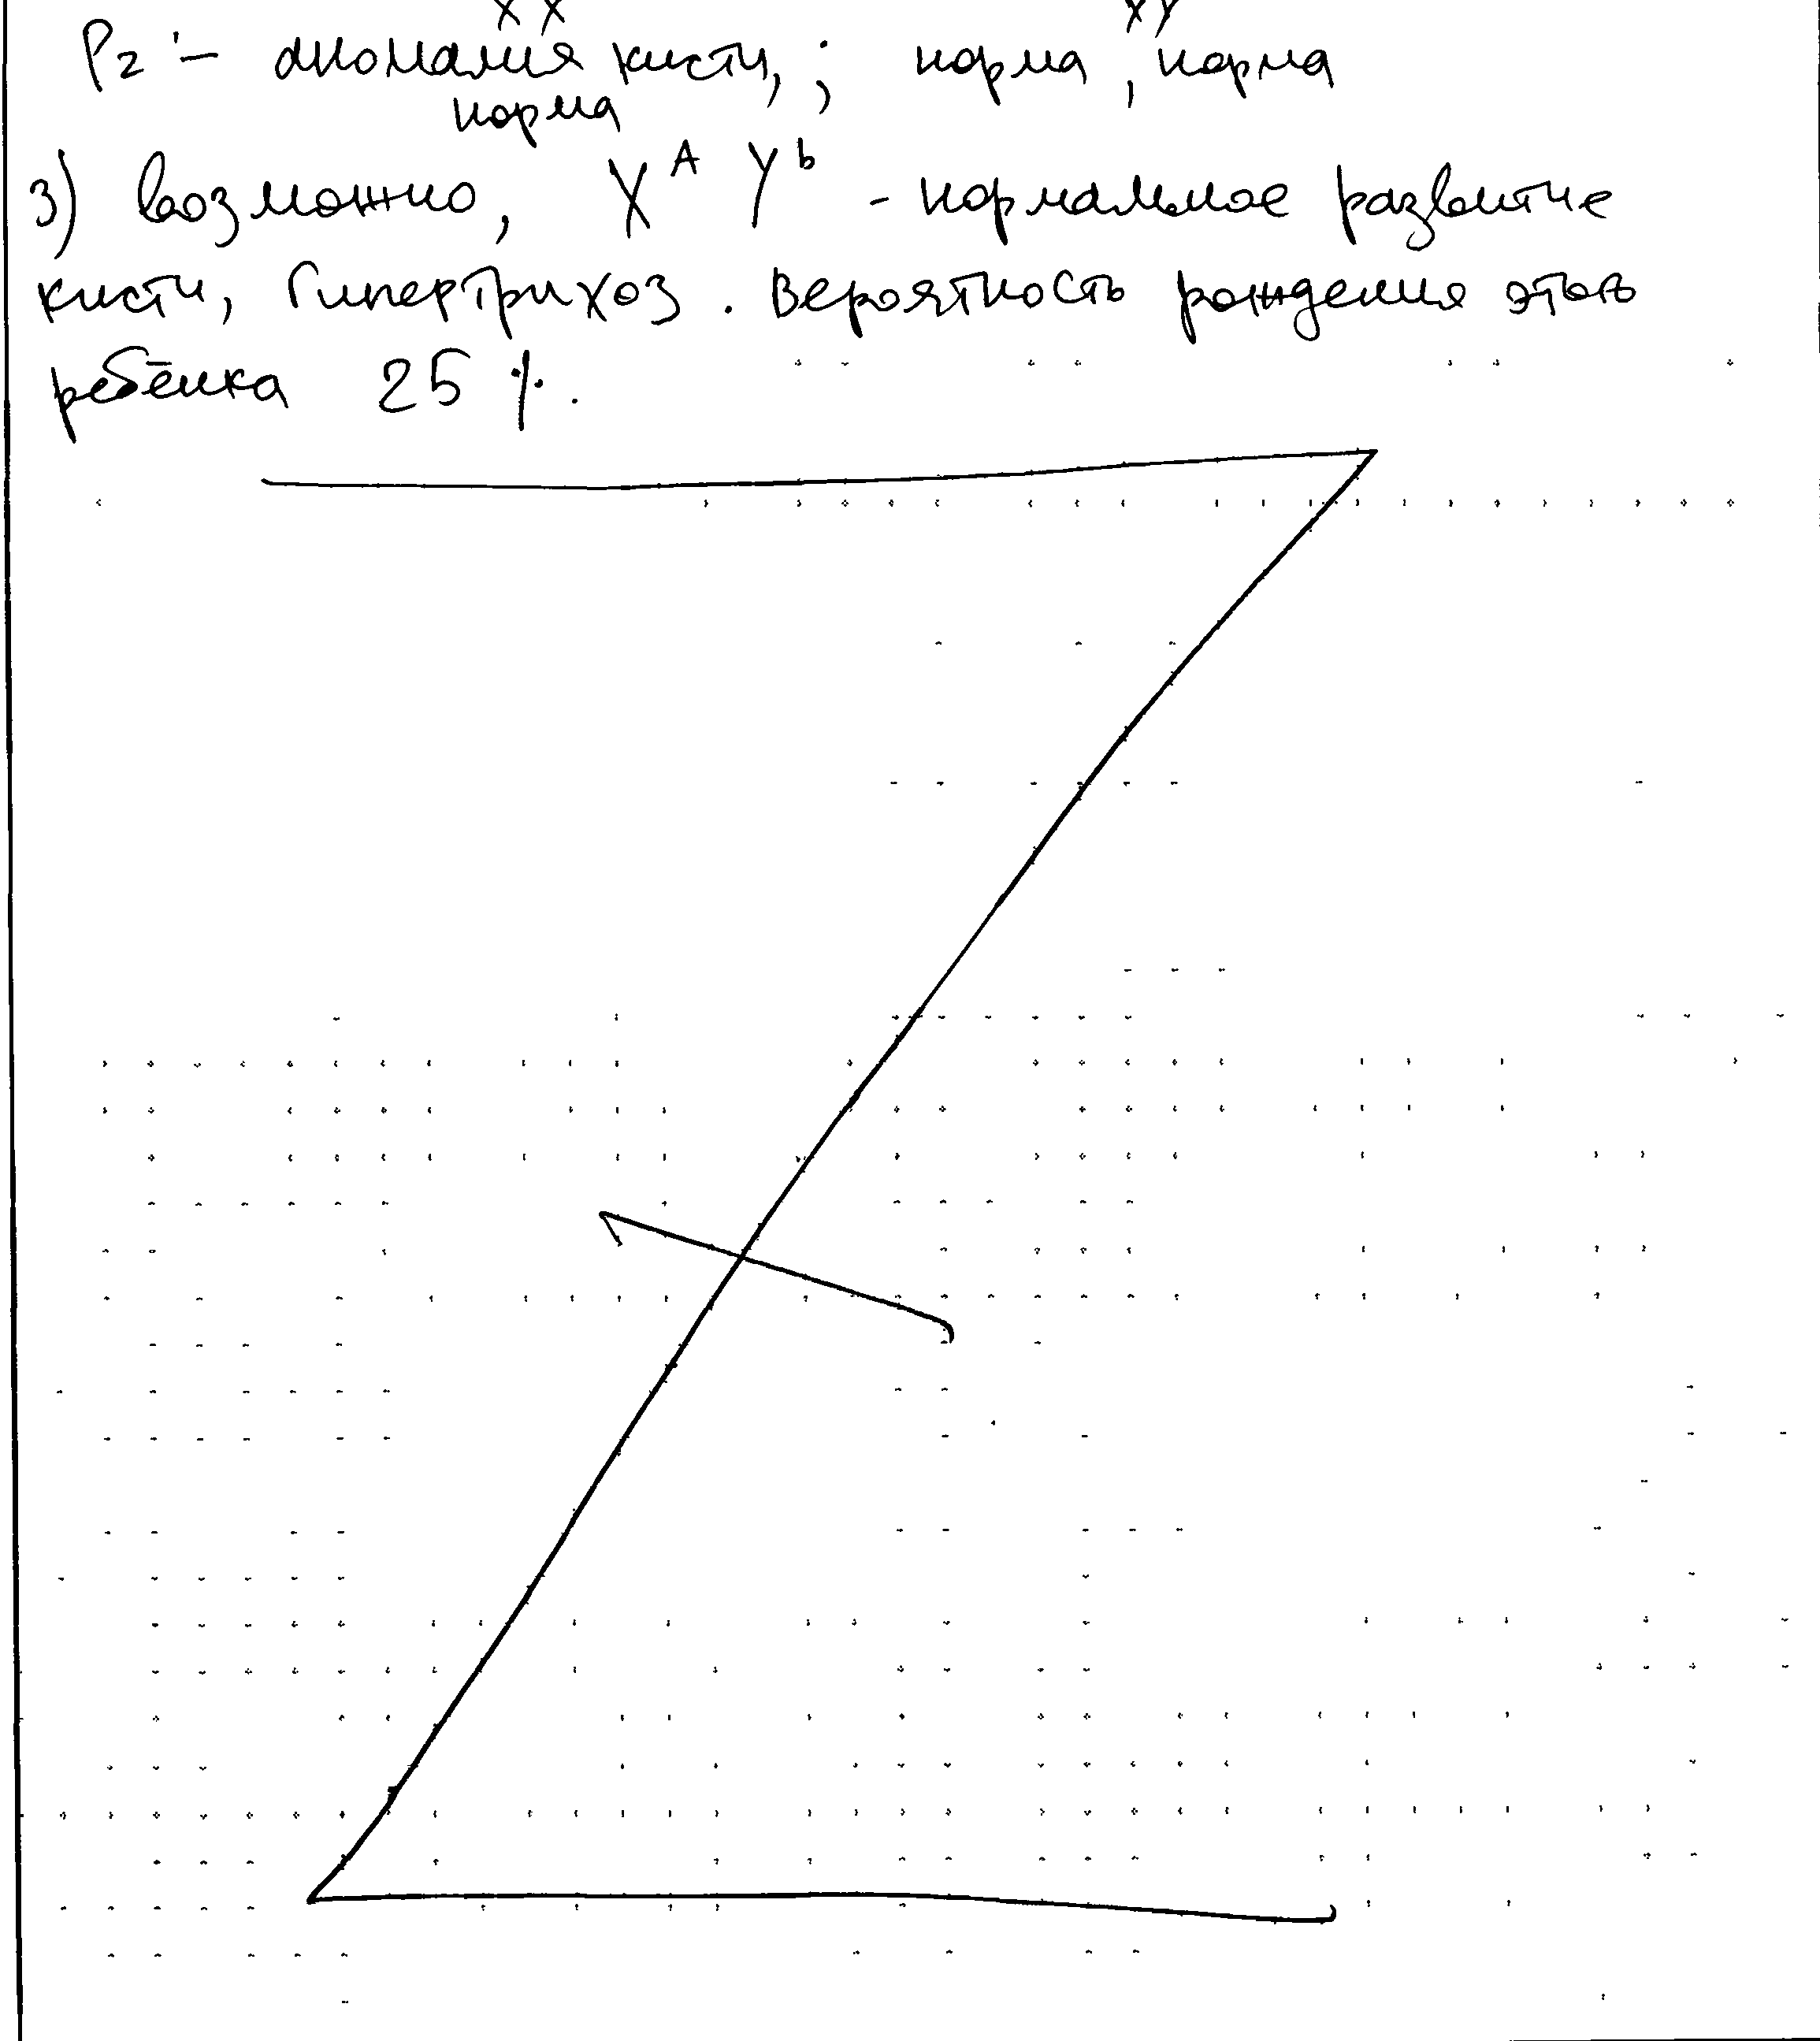 X X XY
P2 :– аномалия кисти, ; норма, норма
норма
3) возможно, X^A Y^b - нормальное развитие
кисти, гипертрихоз. Вероятность рождения этого
ребёнка 25 %.